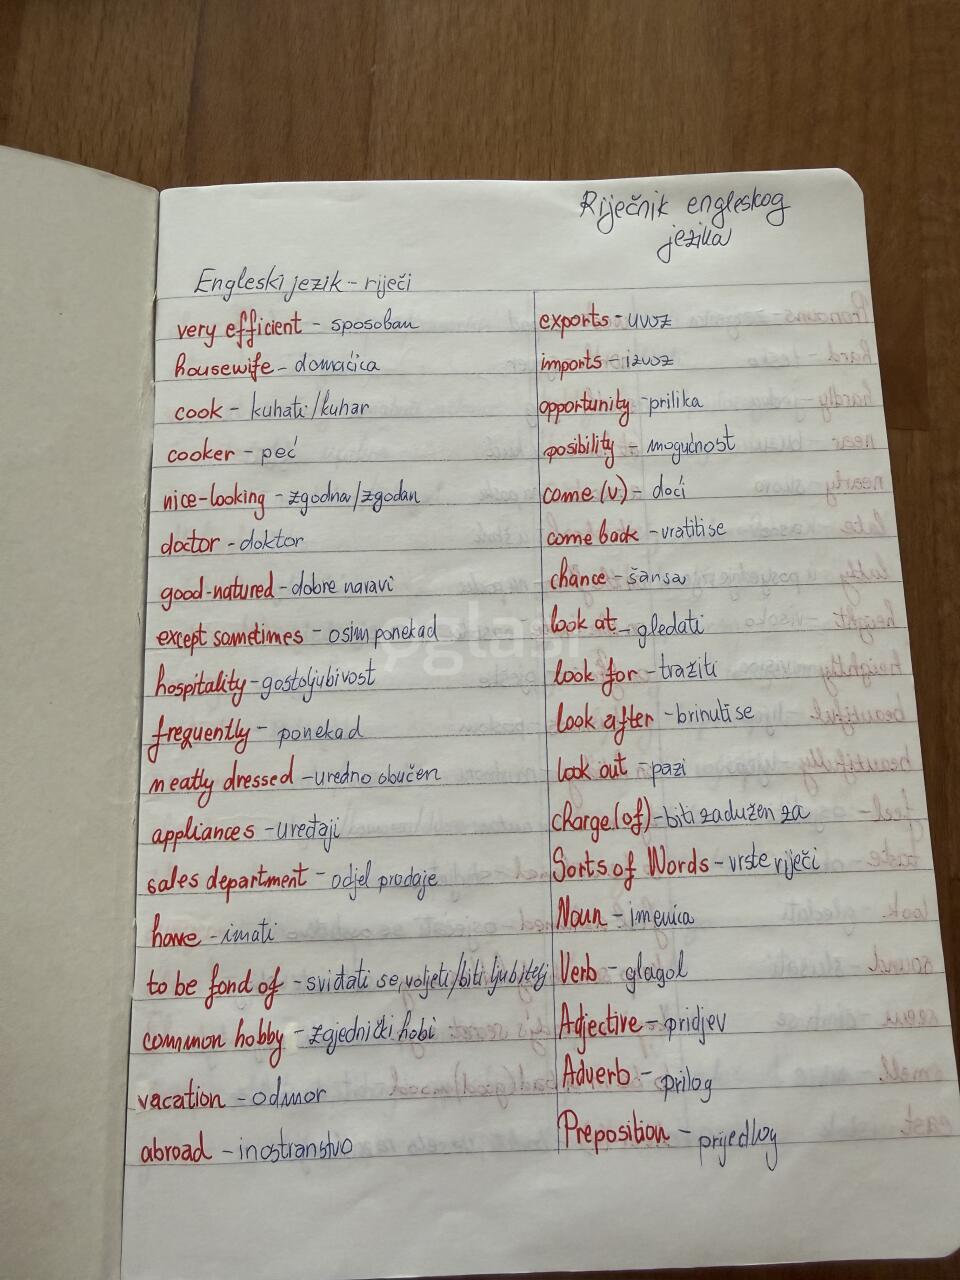 Riječnik engleskog
jezika
Engleski jezik - riječi
very efficient - sposoban
housewife - domaćica
cook - kuhati/kuhar
cooker - peć
nice-looking - zgodna/zgodan
doctor - doktor
good-natured - dobre naravi
except sometimes - osim ponekad
hospitality - gostoljubivost
frequently - ponekad
neatly dressed - uredno obučen
appliances - uređaji
sales department - odjel prodaje
have - imati
to be fond of - sviđati se, voljeti/biti ljubitelj
common hobby - zajednički hobi
vacation - odmor
abroad - inostranstvo
exports - uvoz
imports - izvoz
opportunity - prilika
posibility - mogućnost
come (v) - doći
come back - vratiti se
chance - šansa
look at - gledati
look for - tražiti
look after - brinuti se
look out - pazi
charge (of) - biti zadužen za
Sorts of Words - vrste riječi
Noun - imenica
Verb - glagol
Adjective - pridjev
Adverb - prilog
Preposition - prijedlog
oglasi